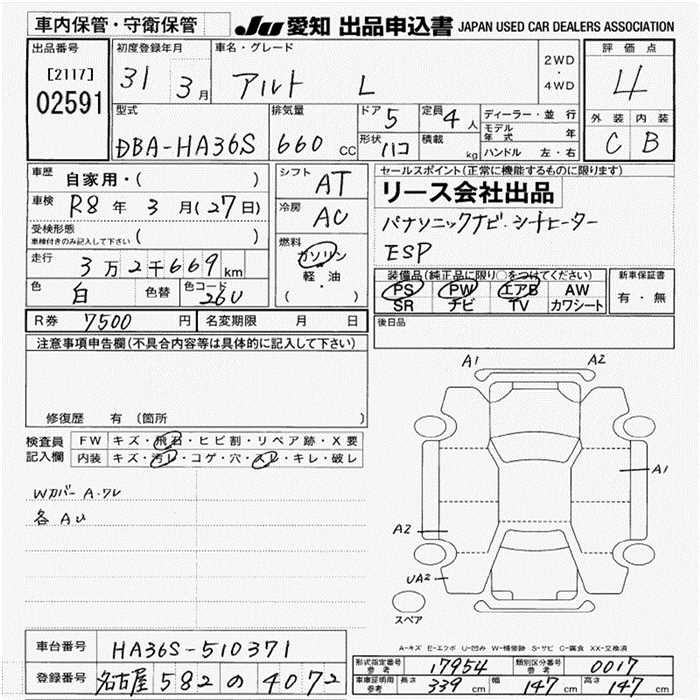 車内保管・守衛保管
JU 愛知 出品申込書 JAPAN USED CAR DEALERS ASSOCIATION
出品番号
[2117]
02591
初度登録年月
31 3月
車名・グレード
アルト L
2WD
・
4WD
評価点
4
外装 内装
C B
型式
DBA-HA36S
排気量
660 cc
ドア 5
形状 ハコ
定員 4人
積載 kg
ディーラー・並行
モデル年式 年
ハンドル 左・右
車歴 自家用・( )
車検 R8年 3月(27日)
受検形態
車検付きのみ記入して下さい ( )
走行 3万2千669km
色 白 色替 色コード 26U
シフト AT
冷房 AC
燃料
ガソリン
軽・油
( )
セールスポイント(正常に機能するものに限ります)
リース会社出品
パナソニックナビ・シートヒーター
ESP
装備品(純正品に限り○をつけてください)
PS PW エアB AW
SR ナビ TV カワシート
新車保証書
有・無
R券 7500円 名変期限 月 日
後日品
注意事項申告欄(不具合内容等は具体的に記入して下さい)
修復歴 有(箇所 )
検査員記入欄
FW キズ・飛石・ヒビ割・リペア跡・X要
内装 キズ・汚レ・コゲ・穴・スレ・キレ・破レ
Wカバー A・ワレ
各 AU
A1 A2
A1
A2
UA2
スペア
A-キズ E-エクボ U-凹み W-補修跡 S-サビ C-腐食 XX-交換済
車台番号 HA36S-510371
登録番号 名古屋 582 の 4072
形式指定番号 参考 17954
類別区分番号 参考 0017
車庫証明用 参考 長さ 339cm 幅 147cm 高さ 147cm